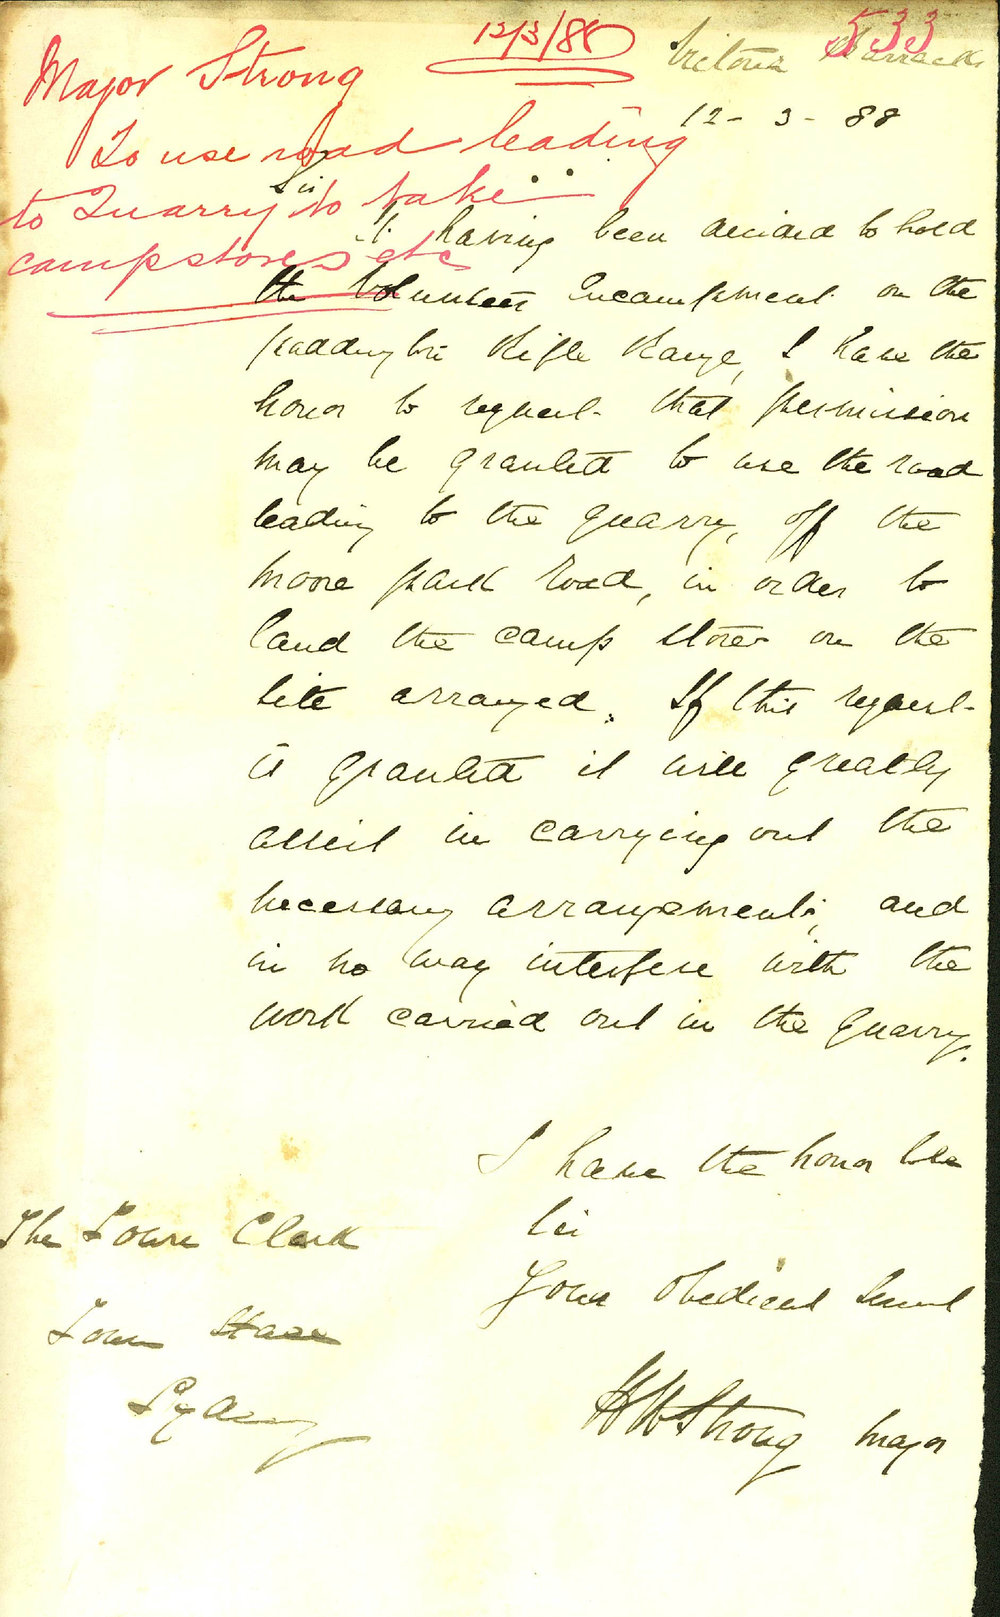 533
12/3/88
Major Strong
To use road leading
to Quarry to take
camp stores etc
Victoria Barracks
12 - 3 - 88
Sir
It having been decided to hold
the Volunteer Encampment on the
paddington Rifle Range, I have the
honor to request that permission
may be granted to use the road
leading to the quarry, off the
Moore park road, in order to
land the camp stores on the
site arranged. If this request
is granted it will greatly
assist in carrying out the
necessary arrangements, and
in no way interfere with the
work carried out in the quarry.
I have the honor to be
Sir
Your Obedient Servant
H W Strong Major
The Town Clerk
Town Hall
Sydney